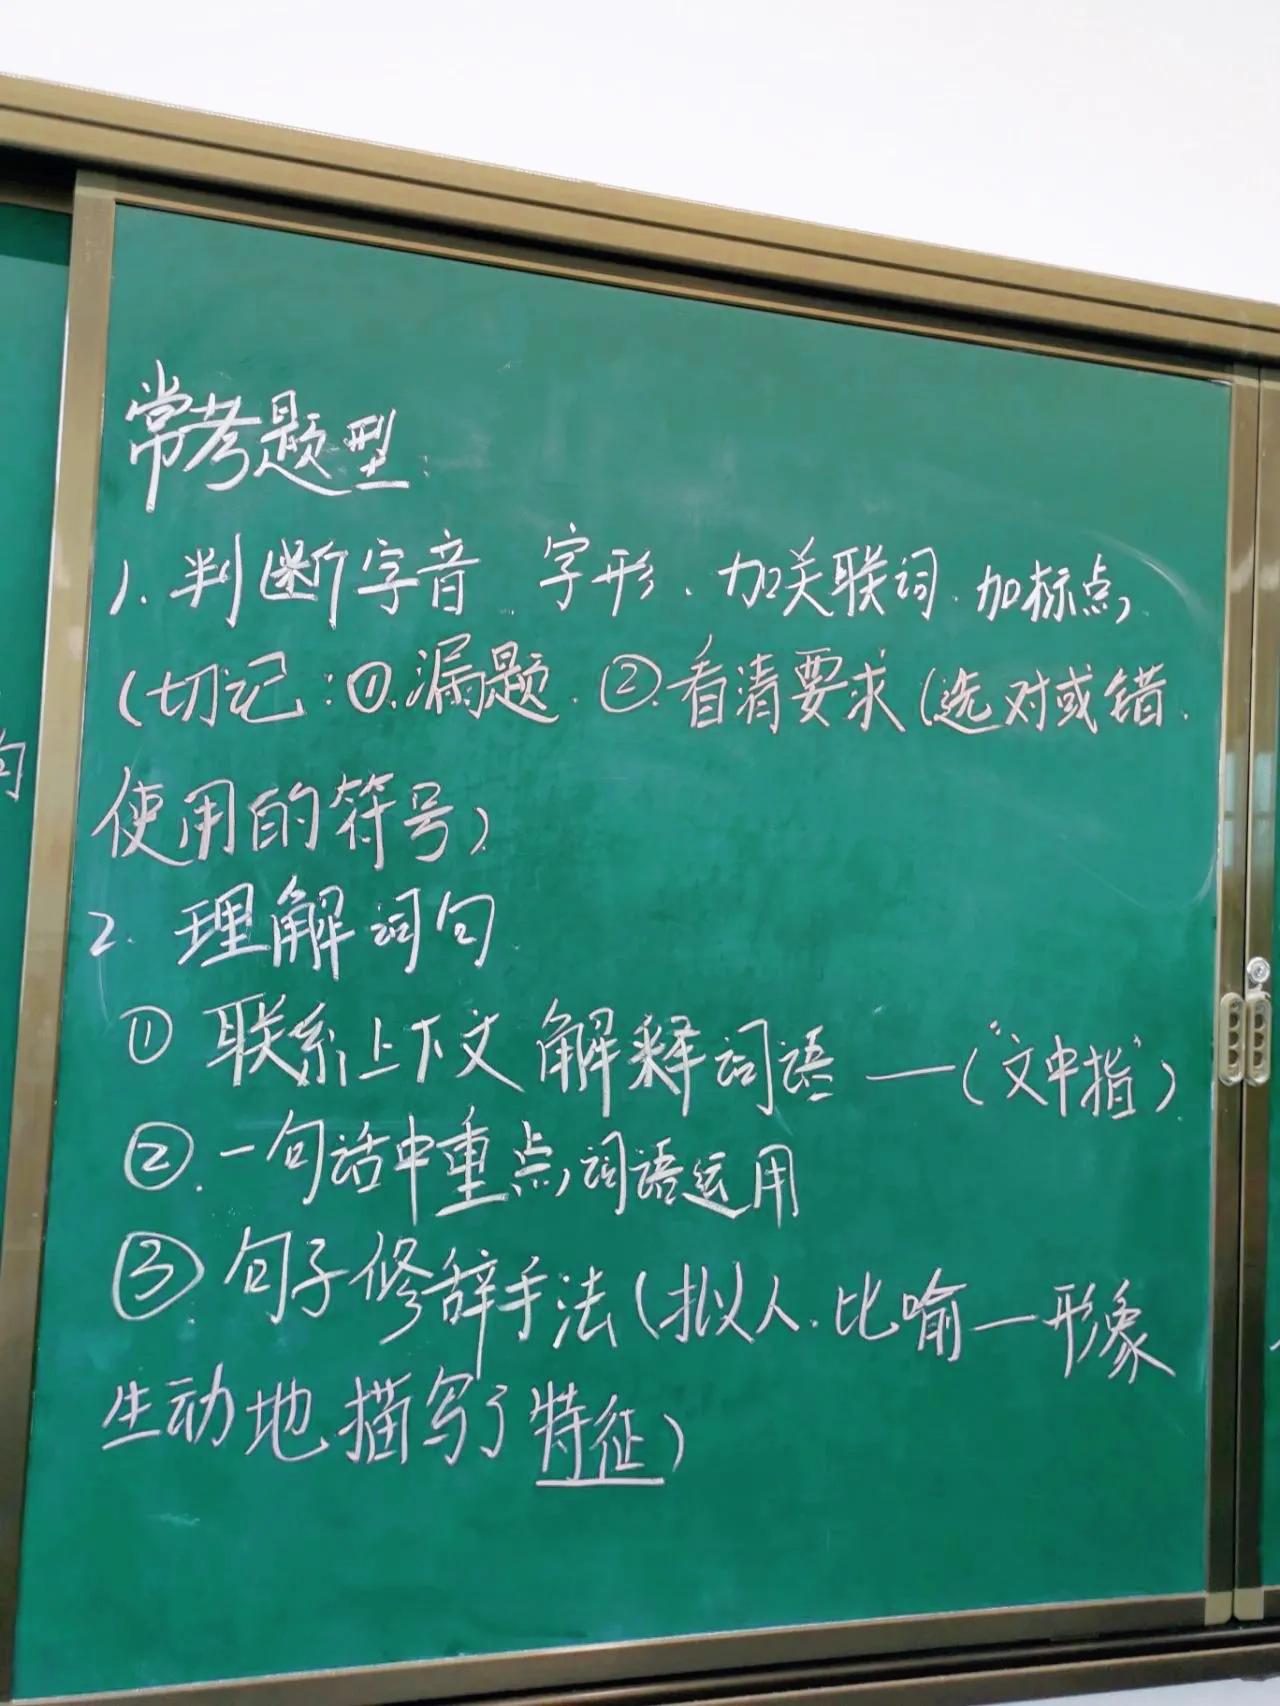 常考题型:
1. 判断字音、字形、加关联词、加标点,
(切记:①.漏题.②.看清要求(选对或错.
使用的符号)
2. 理解词句
① 联系上下文解释词语——("文中指")
②.一句话中重点词语运用
③ 句子修辞手法(拟人.比喻—形象
生动地描写了特征)